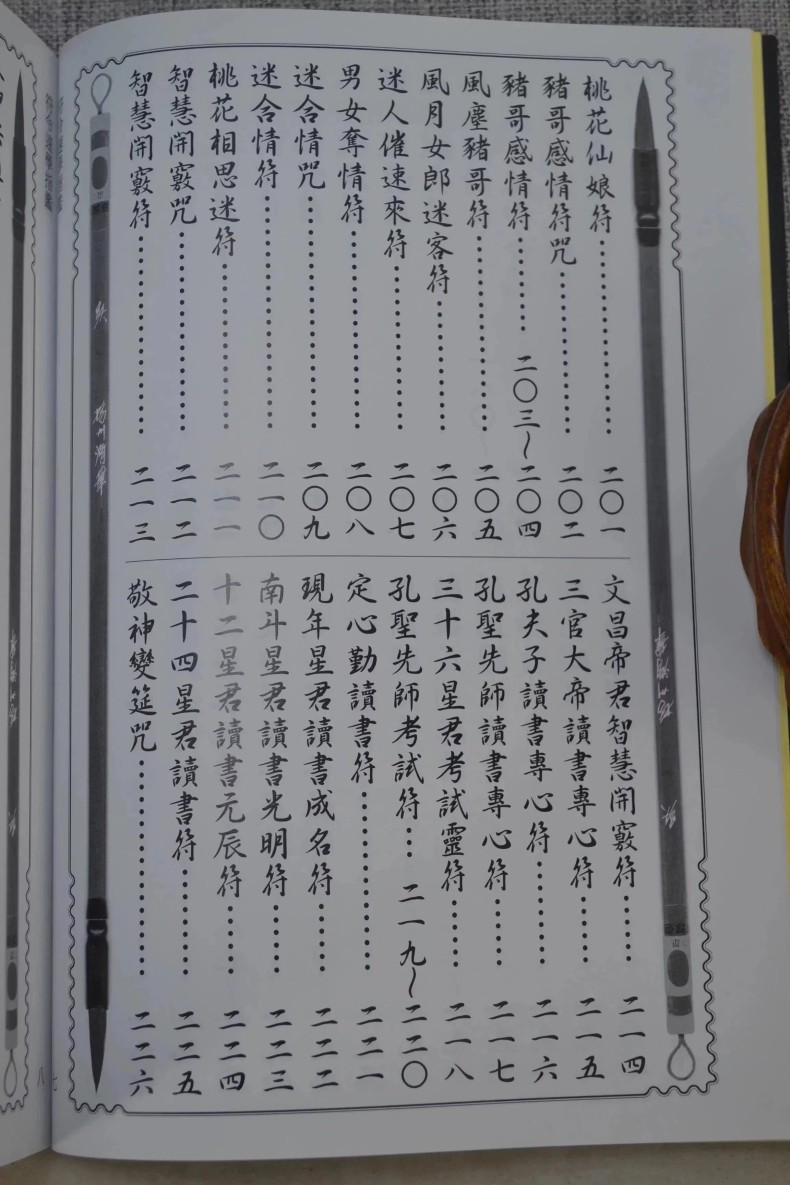 桃花仙娘符………………二〇一
豬哥感情符咒……………二〇二
豬哥感情符………二〇三~二〇四
風塵豬哥符………………二〇五
風月女郎迷客符…………二〇六
迷人催速來符……………二〇七
男女奪情符………………二〇八
迷合情咒…………………二〇九
迷合情符…………………二一〇
桃花相思迷符……………二一一
智慧開竅咒………………二一二
智慧開竅符………………二一三
文昌帝君智慧開竅符……二一四
三官大帝讀書專心符……二一五
孔夫子讀書專心符………二一六
孔聖先師讀書專心符……二一七
三十六星君考試靈符……二一八
孔聖先師考試符…二一九~二二〇
定心勤讀書符……………二二一
現年星君讀書成名符……二二二
南斗星君讀書光明符……二二三
十二星君讀書元辰符……二二四
二十四星君讀書符………二二五
敬神變筵咒………………二二六